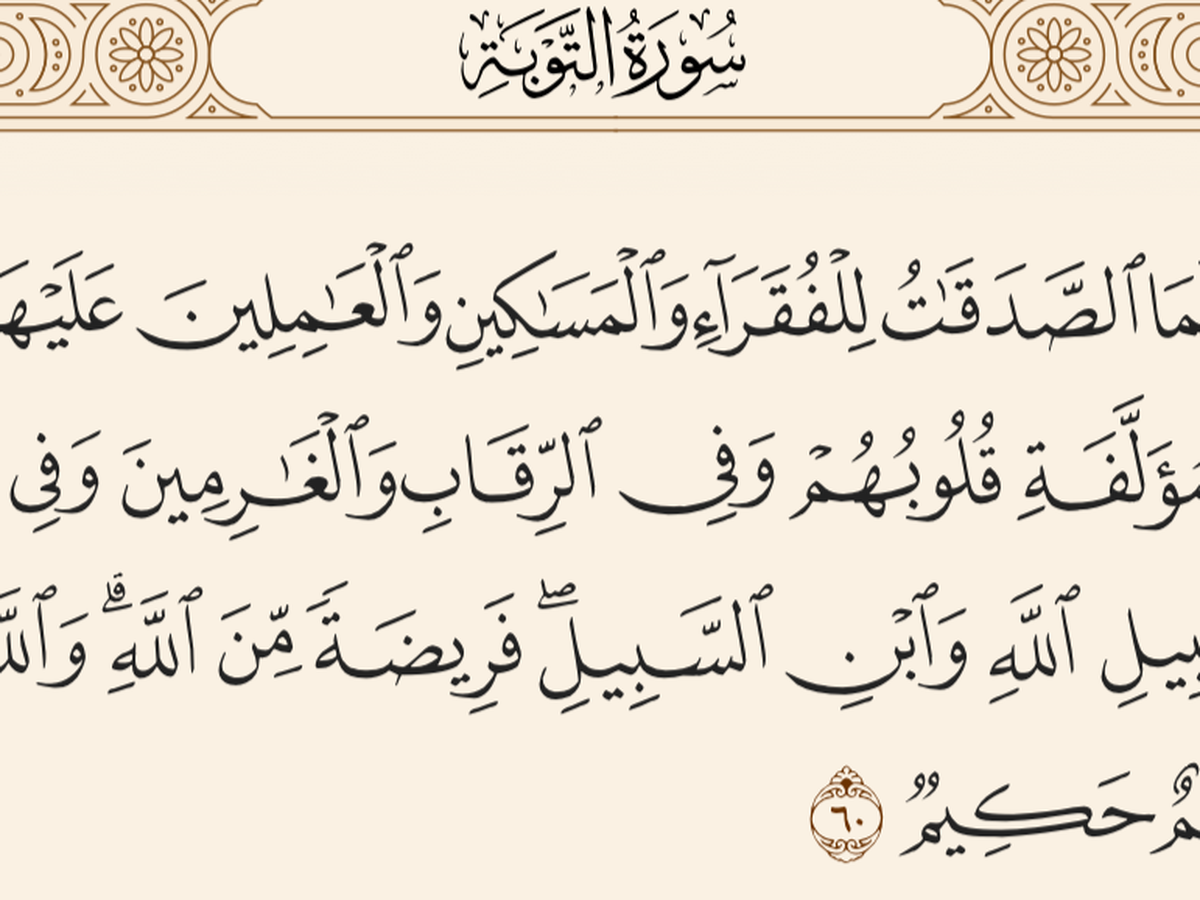 سُورَةُ التَّوْبَةِ
ٱلصَّدَقَٰتُ لِلْفُقَرَآءِ وَٱلْمَسَٰكِينِ وَٱلْعَٰمِلِينَ
قُلُوبُهُمْ وَفِى ٱلرِّقَابِ وَٱلْغَٰرِمِينَ وَفِى
ٱللَّهِ وَٱبْنِ ٱلسَّبِيلِ ۖ فَرِيضَةً مِّنَ ٱللَّهِ ۗ
حَكِيمٌ ٦٠